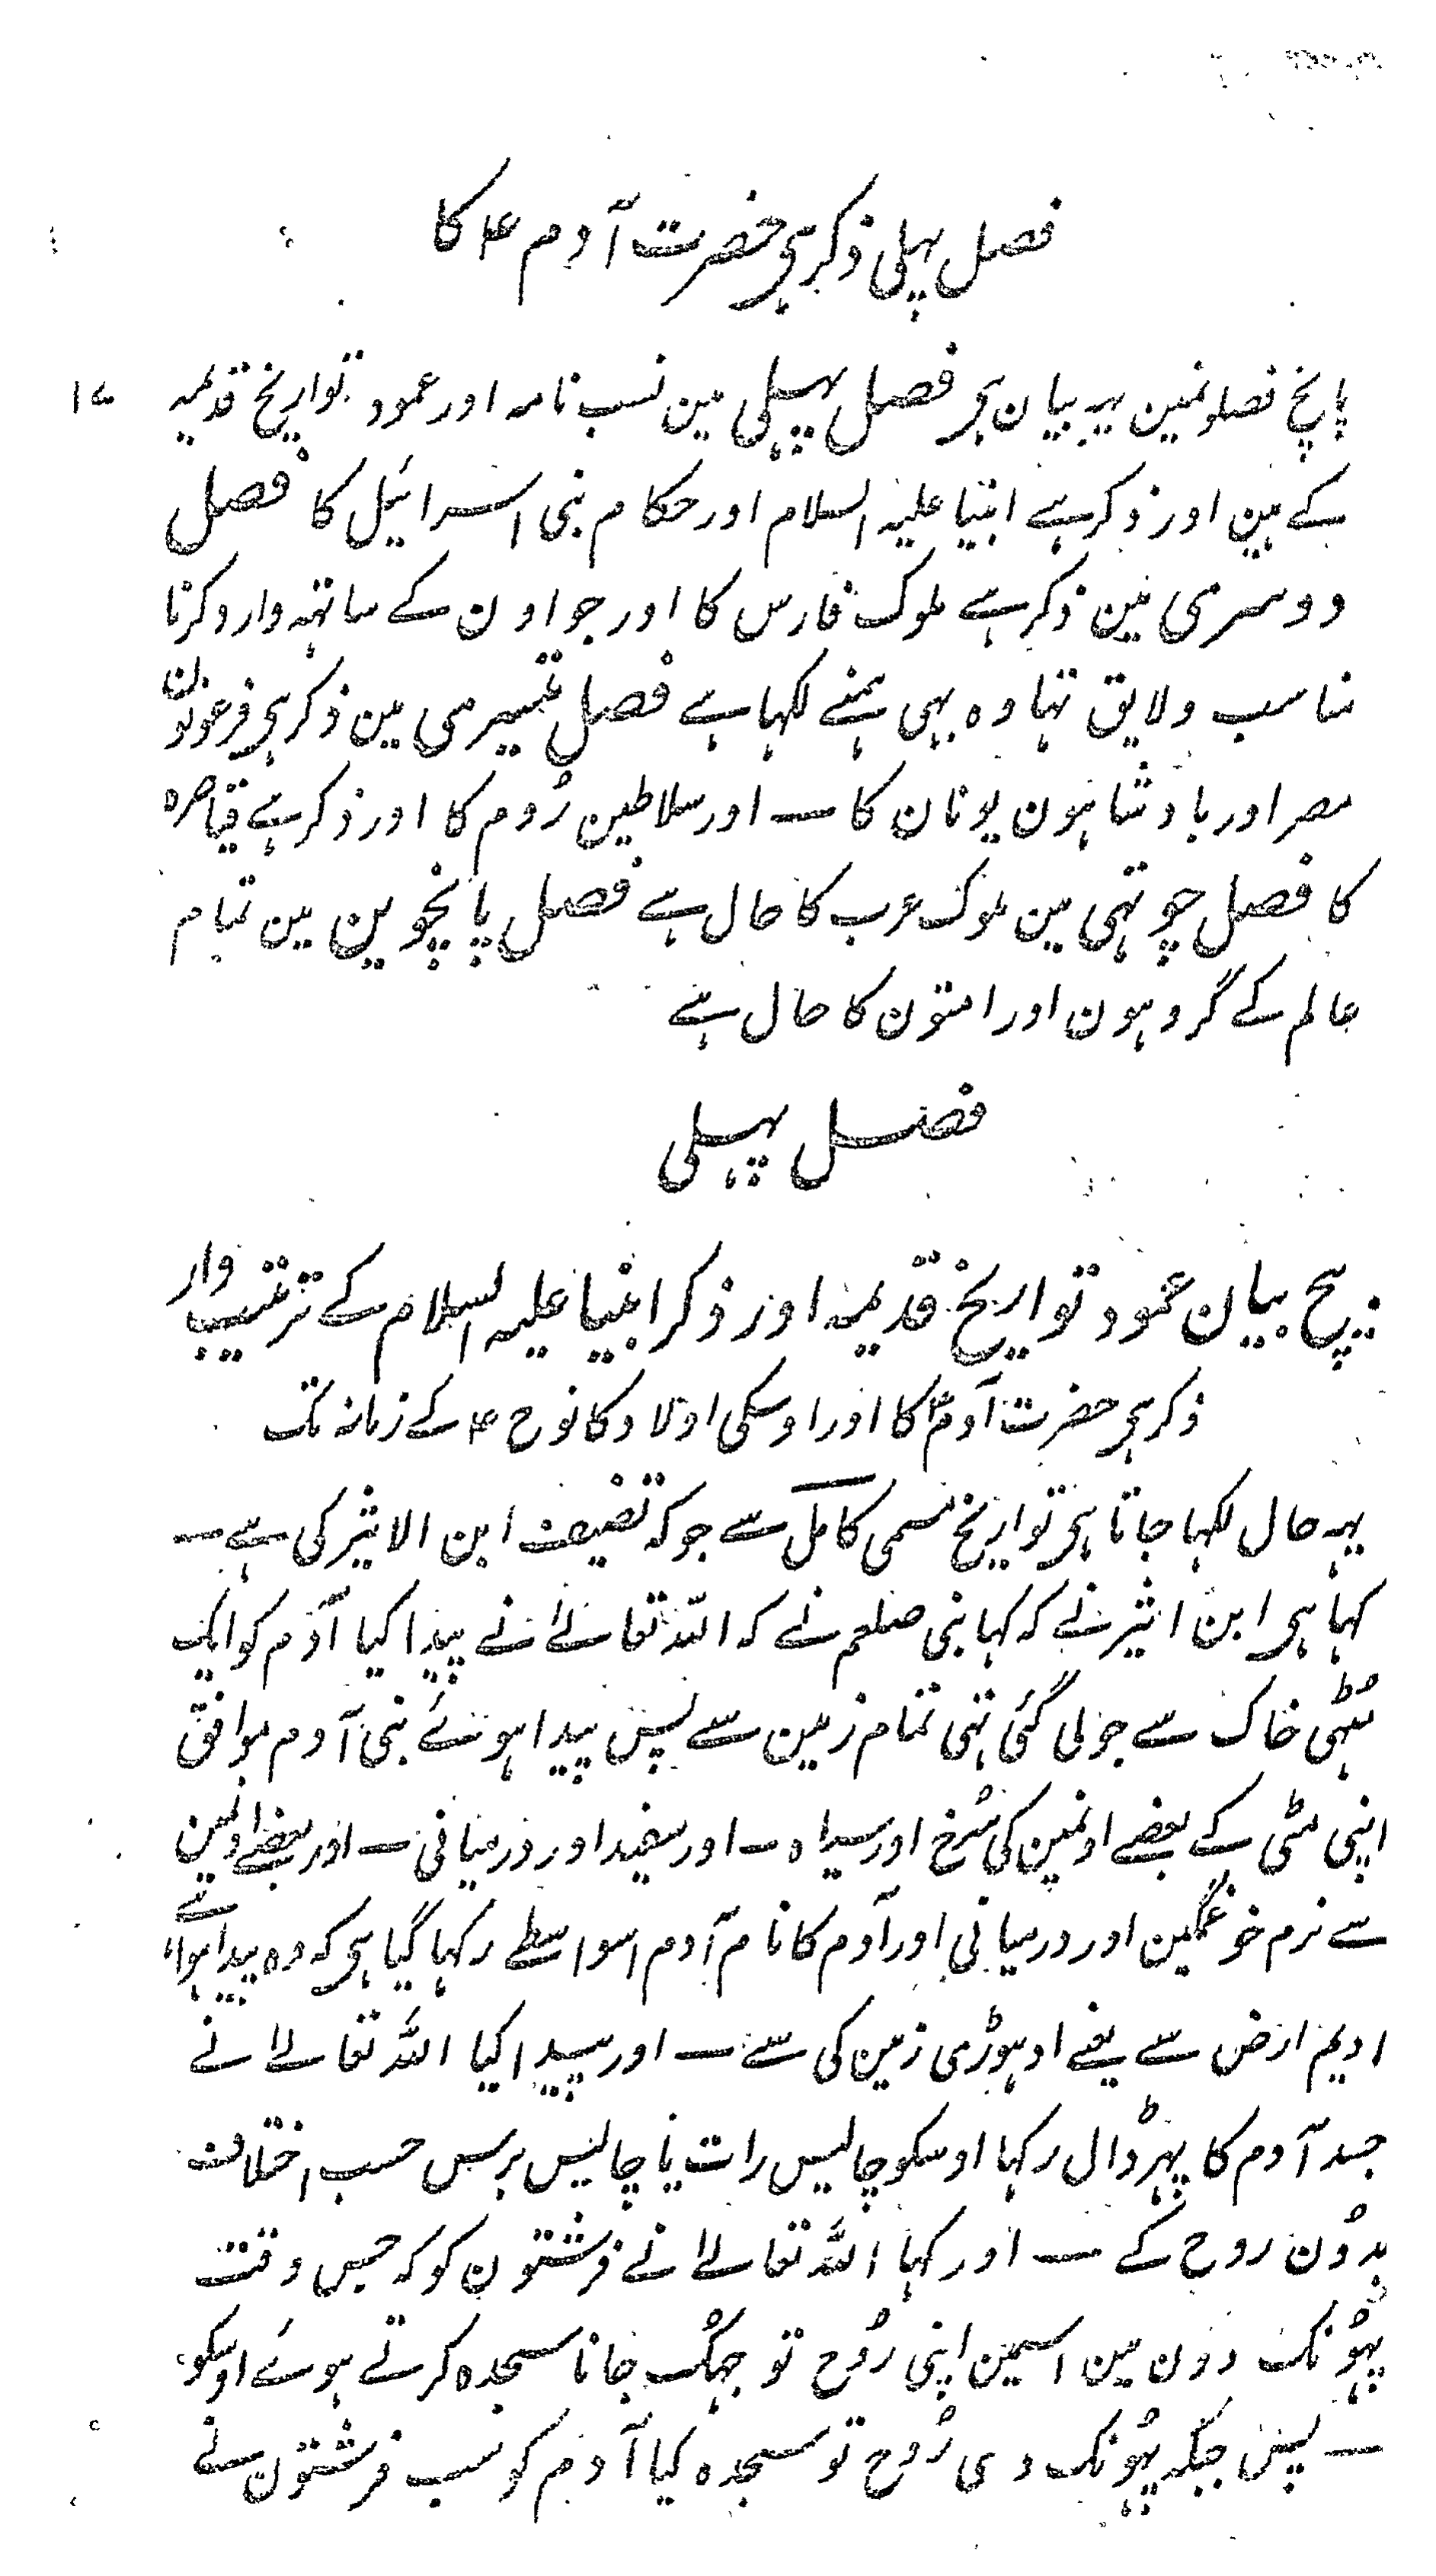 فصل پہلی ذکر ہی حضرت آدم ۴ کا
۱۷
پانچ فصلونمین یہہ بیان ہی فصل پہلی مین نسب نامہ اور عمود تواریخ قدیمہ
کے ہین اور ذکر ہے انبیا علیہ السلام اور حکام بنی اسرائیل کا فصل
دوسری مین ذکر ہے ملوک فارس کا اور جو اون کے ساتھہ وارد کرنا
مناسب ولایق تہا وہ بہی ہمنے لکہا ہے فصل تیسری مین ذکر ہی فرعونون
مصر اور بادشاہون یونان کا — اور سلاطین رُوم کا اور ذکر ہے قیاصرہ
کا فصل چوتہی مین ملوک عرب کا حال ہے فصل پانچوین مین تمام
عالم کے گروہون اور امتون کا حال ہے
فصل پہلی
بیچ بیان عمود تواریخ قدیمہ اور ذکر انبیا علیہ السلام کے ترتیب وار
ذکر ہی حضرت آدمؑ کا اور اوسکی اولاد کا نوح ۴ کے زمانہ تک
یہہ حال لکہا جاتا ہی تواریخ مسمی کامل سے جو کہ تصنیف ابن الاثیر کی ہے —
کہا ہی ابن اثیر نے کہ کہا نبی صلعم نے کہ اللّہ تعالےٰ نے پیدا کیا آدم کو ایک
مُٹہی خاک سے جو لی گئی تہی تمام زمین سے پس پیدا ہوئے بنی آدم موافق
اپنی مٹی کے بعضے اونمین کی سُرخ اور سیاہ — اور سفید اور درمیانی — اور بعضے اونمین
سے نرم خو غمگین اور درمیانی اور آدم کا نام آدم اسواسطے رکہا گیا ہی کہ وہ پیدا ہوا ہے
ادیم ارض سے یعنے اوہوڑی زمین کی سے — اور پیدا کیا اللّہ تعالےٰ نے
جسد آدم کا پہر ڈال رکہا اوسکو چالیس رات یا چالیس برس حسب اختلاف
بدُون روح کے — اور کہا اللّہ تعالےٰ نے فرشتون کو کہ جس وقت
پہُونک دون مین اسمین اپنی رُوح تو جہُک جانا سجدہ کرتے ہوئے اوسکو
— پس جبکہ پہُونک دی رُوح تو سجدہ کیا آدم کو سب فرشتون نے